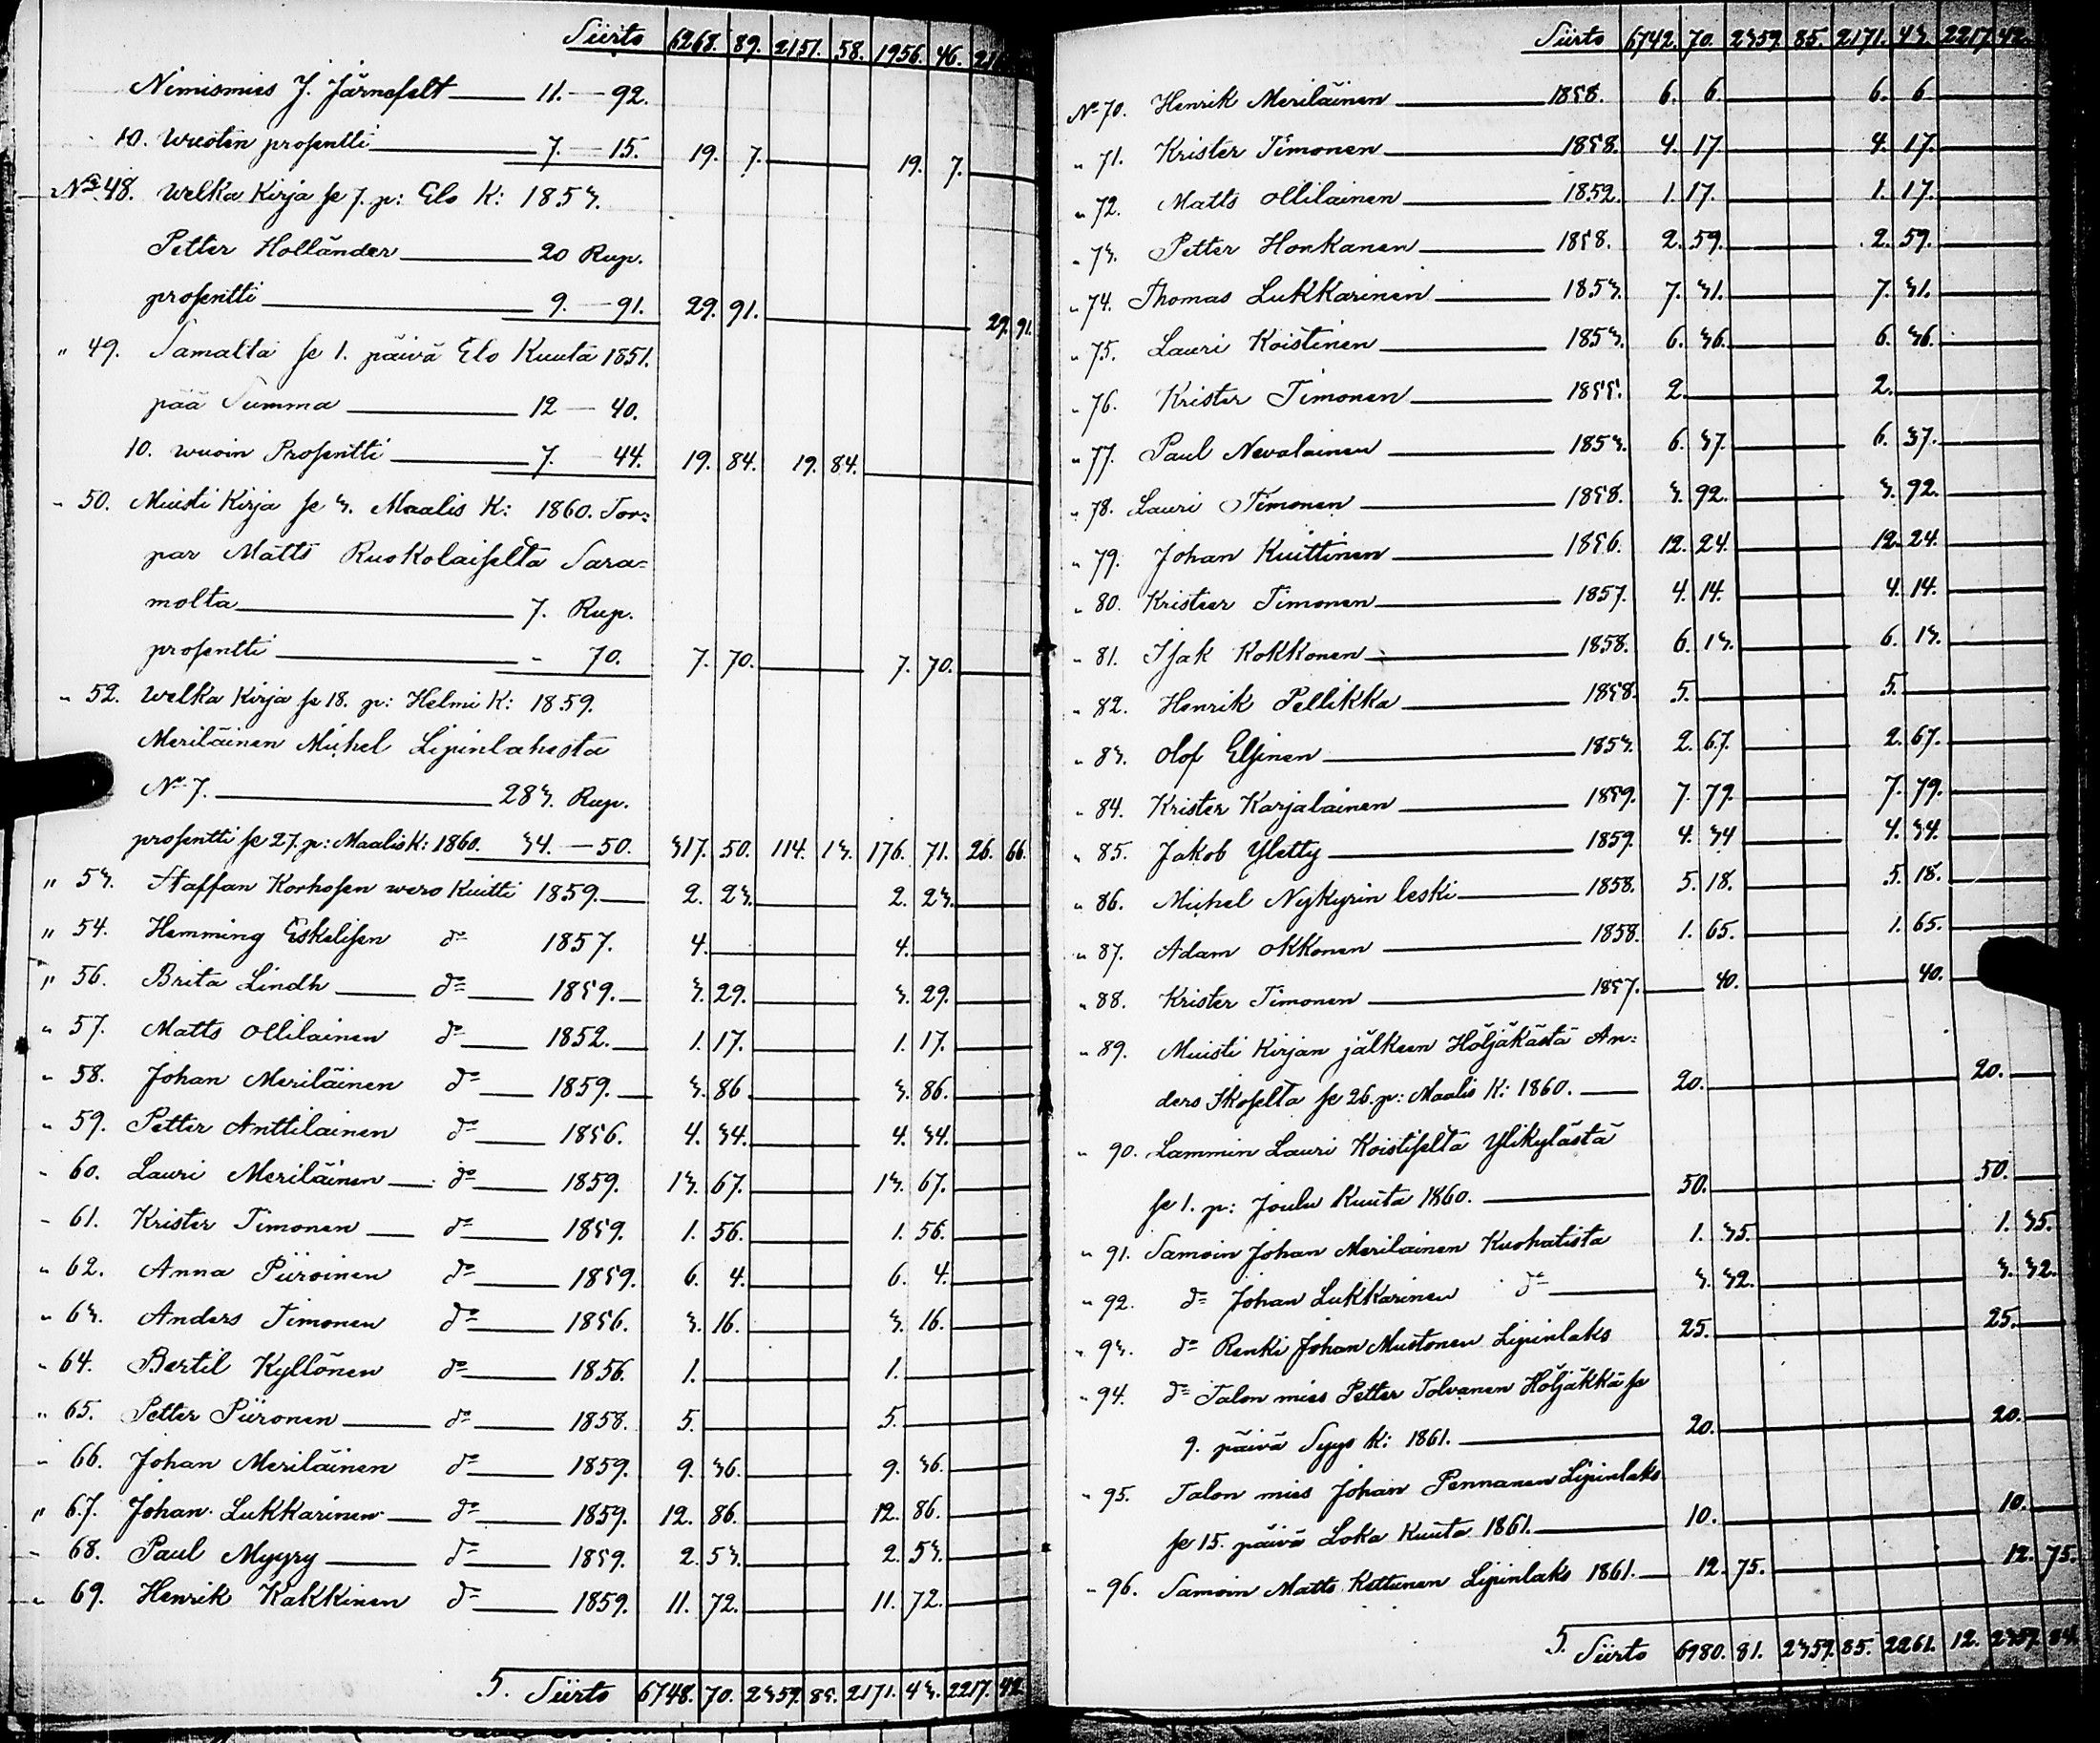 Siirto 6268. 89. 2151. 58. 1956. 46.
Nimismies J. Järnefelt 11. — 92.
10. wuoten prosentti 7. — 15. 19. 7. 19. 7.
No 48. Welka Kirja se 7. p: Elo K: 1853.
Petter Holländer 20 Rup.
prosentti 9. — 91. 29. 91. 29. 91.
" 49. Samalta se 1. päivä Elo Kuuta 1851.
pää Summa 12 — 40.
10. wuoin Prosentti 7. — 44. 19. 84. 19. 84.
" 50. Muisti Kirja se 3. Maalis K: 1860. Tor=
par Matts Ruokolaiselta Sara=
molta 7. Rup.
prosentti - 70. 7. 70. 7. 70.
" 52. Welka Kirja se 18. p: Helmi K: 1859.
Meriläinen Michel Lipinlahesta
No 7. 283. Rup.
prosentti se 27. p: Maalis K: 1860. 34. — 50. 317. 50. 114. 13. 176. 71. 26. 66.
" 53. Staffan Korhosen wero Kuitti 1859. 2. 23. 2. 23.
" 54. Hemming Eskelisen do 1857. 4. 4.
" 56. Brita Lindh do 1859. 3. 29. 3. 29.
" 57. Matts Ollilainen do 1852. 1. 17. 1. 17.
" 58. Johan Meriläinen do 1859. 3. 86 3. 86.
" 59. Petter Anttilainen do 1856. 4. 34. 4. 34.
" 60. Lauri Meriläinen do 1859. 13. 67. 13. 67.
" 61. Krister Timonen do 1859. 1. 56. 1. 56.
" 62. Anna Piiroinen do 1859. 6. 4. 6. 4.
" 63. Anders Timonen do 1856. 3. 16. 3. 16.
" 64. Bertil Kyllönen do 1856. 1. 1.
" 65. Petter Piironen do 1858. 5. 5.
" 66. Johan Meriläinen do 1859. 9. 36. 9. 36.
" 67. Johan Lukkarinen do 1859. 12. 86. 12. 86.
" 68. Paul Myyry do 1859. 2. 53. 2. 53.
" 69. Henrik Kakkinen do 1859. 11. 72. 11. 72.
5. Siirto 6748. 70. 2359. 85. 2171. 43. 2217. 42.
Siirto 6742. 70. 2359. 85. 2171. 43. 2217. 42.
No 70. Henrik Meriläinen 1858. 6. 6. 6. 6
" 71. Krister Timonen 1858. 4. 17. 4. 17.
" 72. Matts Ollilainen 1852. 1. 17. 1. 17.
" 73. Petter Honkanen 1858. 2. 59. 2. 59.
" 74. Thomas Lukkarinen 1853. 7. 31. 7. 31.
" 75. Lauri Koistinen 1853. 6. 36. 6. 36.
" 76. Krister Timonen 1855. 2. 2.
" 77. Paul Nevalainen 1853. 6. 37. 6. 37.
" 78. Lauri Timonen 1858. 3. 92. 3. 92.
" 79. Johan Kuittinen 1856. 12. 24. 12. 24.
" 80. Kristeer Timonen 1857. 4. 14. 4. 14.
" 81. Isak Kokkonen 1858. 6. 13. 6. 13.
" 82. Henrik Pellikka 1858. 5. 5.
" 83. Olof Elsinen 1853. 2. 67. 2. 67.
" 84. Krister Karjalainen 1859. 7. 79. 7. 79.
" 85. Jakob Yletty 1859. 4. 34 4. 34.
" 86. Michel Nykyrin leski 1858. 5. 18. 5. 18.
" 87. Adam Okkonen 1858. 1. 65. 1. 65.
" 88. Krister Timonen 1857. 40. 40.
" 89. Muisti Kirjan jälkeen Höljäkästä An=
ders Ikoselta se 26. p: Maalis K: 1860. 20. 20.
" 90. Lammin Lauri Koistiselta Ylikylästä
se 1. p: Joulu Kuuta 1860. 50. 50.
" 91. Samoin Johan Meriläinen Kuohatista 1. 35. 1. 35.
" 92. do Johan Lukkarinen do 3. 32. 3. 32.
" 93. do Renki Johan Mustonen Lipinlaks 25. 25.
" 94. do Talon mies Petter Tolvanen Höljäkkä se
9. päivä Syys K: 1861. 20. 20.
" 95. Talon mies Johan Pennanen Lipinlaks
se 15. päivä Loka Kuuta 1861. 10. 10.
" 96. Samoin Matts Kettunen Lipinlaks 1861. 12. 75. 12. 75.
5. Siirto 6980. 81. 2359. 85. 2261. 12. 2359. 84.